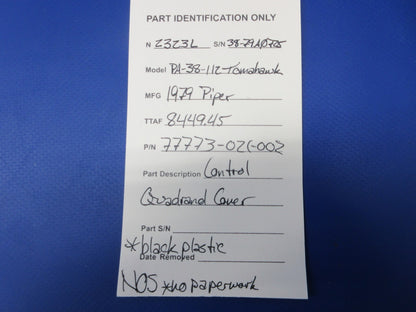 PART IDENTIFICATION ONLY
N 2323L S/N 38-79A0725
Model PA-38-112-Tomahawk
MFG 1979 Piper
TTAF 8449.45
P/N 77773-02(-002
Part Description Control
Quadrand Cover
Part S/N
*black plastic
Date Removed
NOS *no paperwork